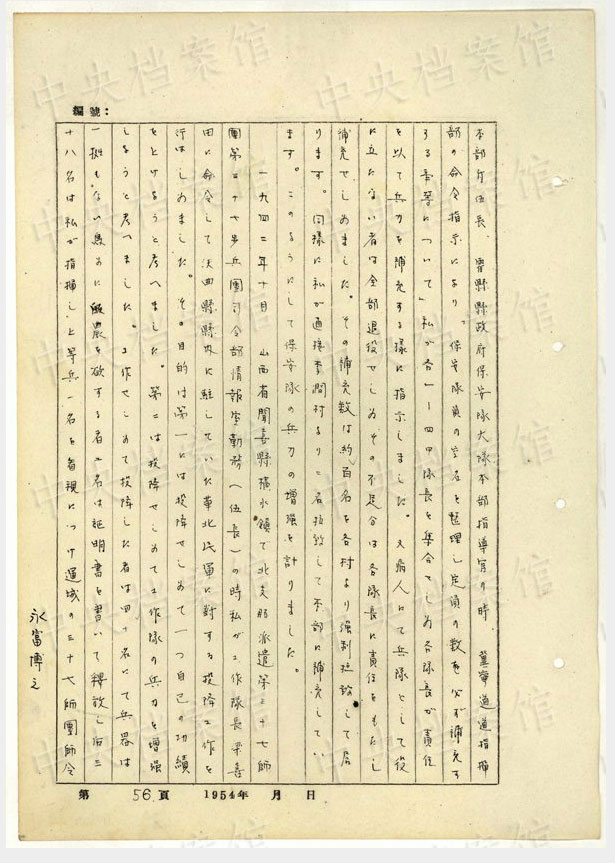 中央档案馆
編號:
本部付伍長、曹縣縣政府保安隊大隊本部指導官の時、冀寧道道指揮
部の命令指示により、「保安隊員の空名を整理し定員の数を必ず補充す
る事等について」私が各一ー四中隊長を集合せしめ各隊長が責任
を以て兵力を補充する様に指示しました。又病人にて兵隊として役
に立たない者は全部退役せしめその不足分は各隊長に責任をもたし
補充せしめました。その補充数は約百名を各村より強制拉致して居
ります。同様に私が直接李澗村より二名拉致して本部に補充してい
ます。このようにして保安隊の兵力の増强を計りました。
一九四二年十月 山西省聞喜縣橫水鎮で北支那派遣第三十七師
團第三十七歩兵團司令部情報室勤務(伍長)の時私が工作隊長梁喜
田に命令して曲縣縣外に駐していた華北民軍に対する投降工作を
行はしめました。その目的は第一には投降せしめて一つ自己の功績
をとげようと考へました。第二は投降せしめて工作隊の兵力を増强
しようと考へました。工作せしめて投降した者は四十名にて兵器は
一挺もない爲めに歸農を欲する者二名は証明書を書いて釋放し后三
十八名は私が指揮し、上等兵一名を看視につけ運城の三十七師團師令
永富博之
第 56 頁 1954年 月 日